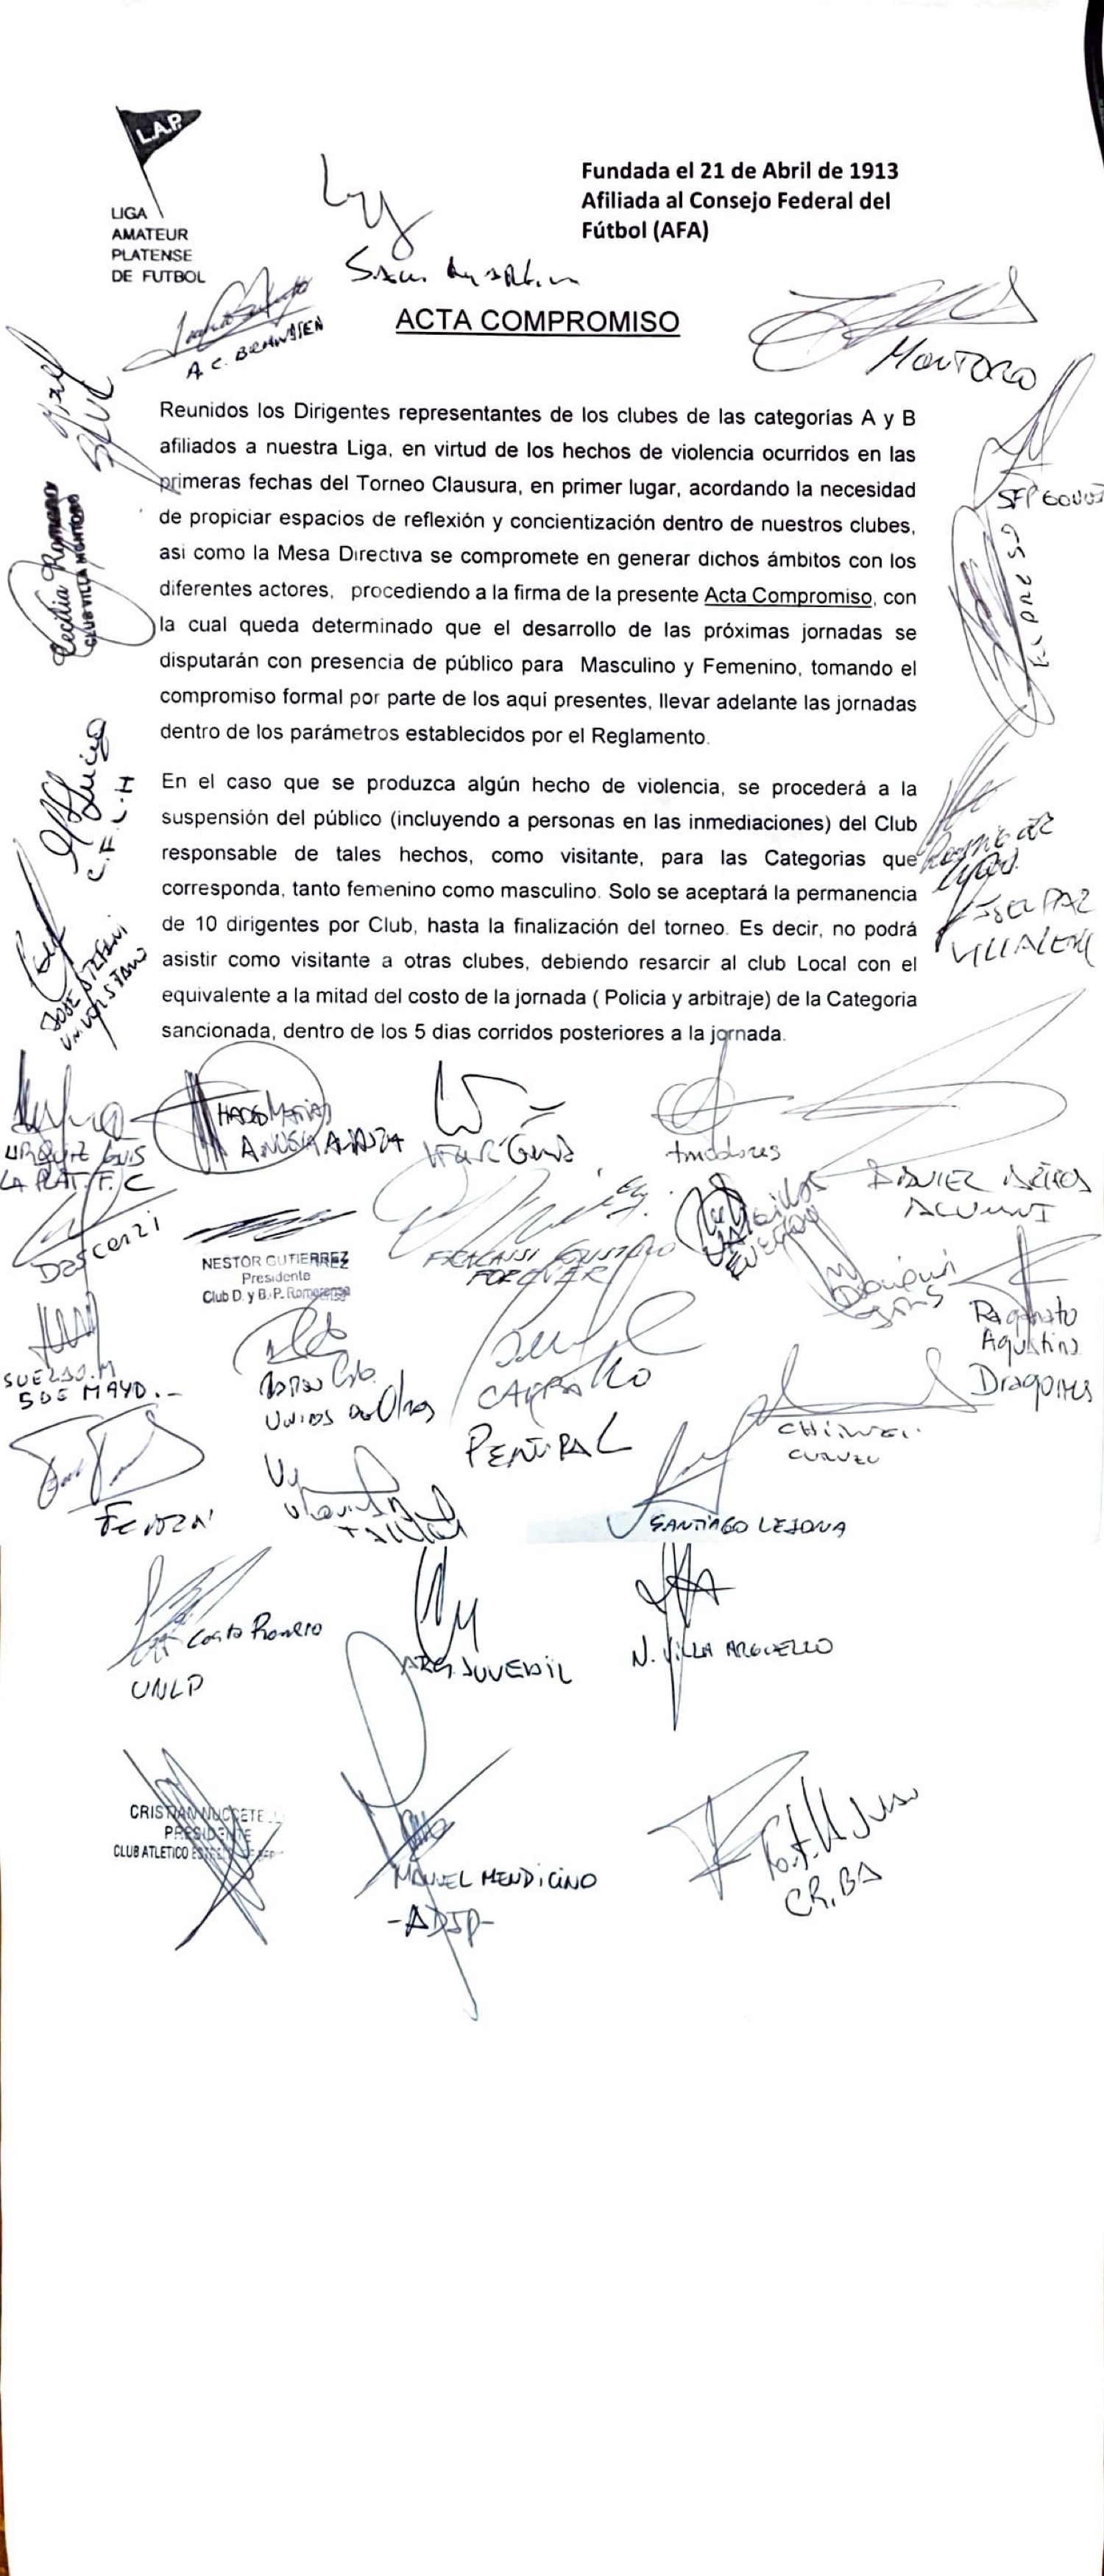 L.A.P.
LIGA
AMATEUR
PLATENSE
DE FUTBOL
Fundada el 21 de Abril de 1913
Afiliada al Consejo Federal del
Fútbol (AFA)
ACTA COMPROMISO
MONTORO
Reunidos los Dirigentes representantes de los clubes de las categorías A y B
afiliados a nuestra Liga, en virtud de los hechos de violencia ocurridos en las
primeras fechas del Torneo Clausura, en primer lugar, acordando la necesidad
de propiciar espacios de reflexión y concientización dentro de nuestros clubes,
asi como la Mesa Directiva se compromete en generar dichos ámbitos con los
diferentes actores, procediendo a la firma de la presente Acta Compromiso, con
la cual queda determinado que el desarrollo de las próximas jornadas se
disputarán con presencia de público para Masculino y Femenino, tomando el
compromiso formal por parte de los aquí presentes, llevar adelante las jornadas
dentro de los parámetros establecidos por el Reglamento.
En el caso que se produzca algún hecho de violencia, se procederá a la
suspensión del público (incluyendo a personas en las inmediaciones) del Club
responsable de tales hechos, como visitante, para las Categorias que
corresponda, tanto femenino como masculino. Solo se aceptará la permanencia
de 10 dirigentes por Club, hasta la finalización del torneo. Es decir, no podrá
asistir como visitante a otras clubes, debiendo resarcir al club Local con el
equivalente a la mitad del costo de la jornada ( Policia y arbitraje) de la Categoria
sancionada, dentro de los 5 dias corridos posteriores a la jornada.
Cecilia Romero
CLUB VILLA MONTORO
C.F.L.H
LA PLATA F.C
NESTOR GUTIERREZ
Presidente
Club D. y B. P. Romerense
FOREVER
Agustino
Dragones
5 DE MAYO.-
SANTIAGO LEJONA
UNLP
ARG. JUVENIL
N. VILLA ARGUELLO
PRESIDENTE
CLUB ATLETICO
MANUEL MENDICINO
-ADIP-
CRIBA